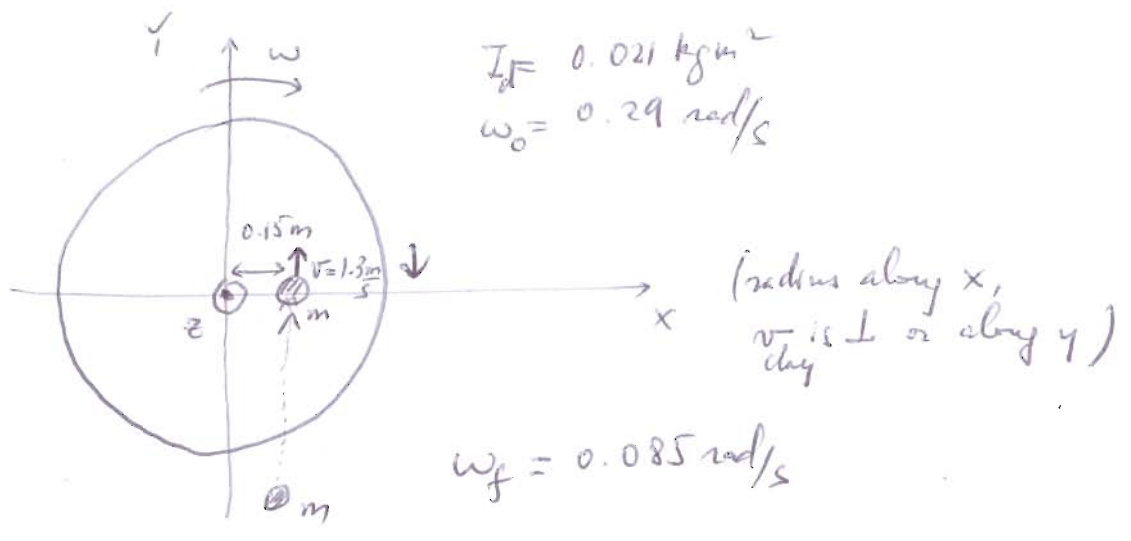 Y
ω
I_d = 0.021 kgm²
ω₀ = 0.29 rad/s
0.15m
v = 1.3 m/s
m
z
x
(radius along x,
v_clay is ⊥ or along y)
ω_f = 0.085 rad/s
m